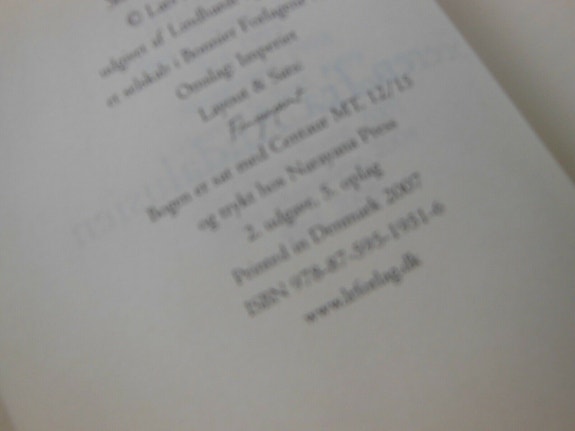 © Lars
udgivet af Lindhardt
et selskab i Bonnier Forlagene
Omslag: Imperiet
Layout & Sats:
Bogen er sat med Centaur MT 12/15
og trykt hos Narayana Press
2. udgave, 5. oplag
Printed in Denmark 2007
ISBN 978-87-595-1951-6